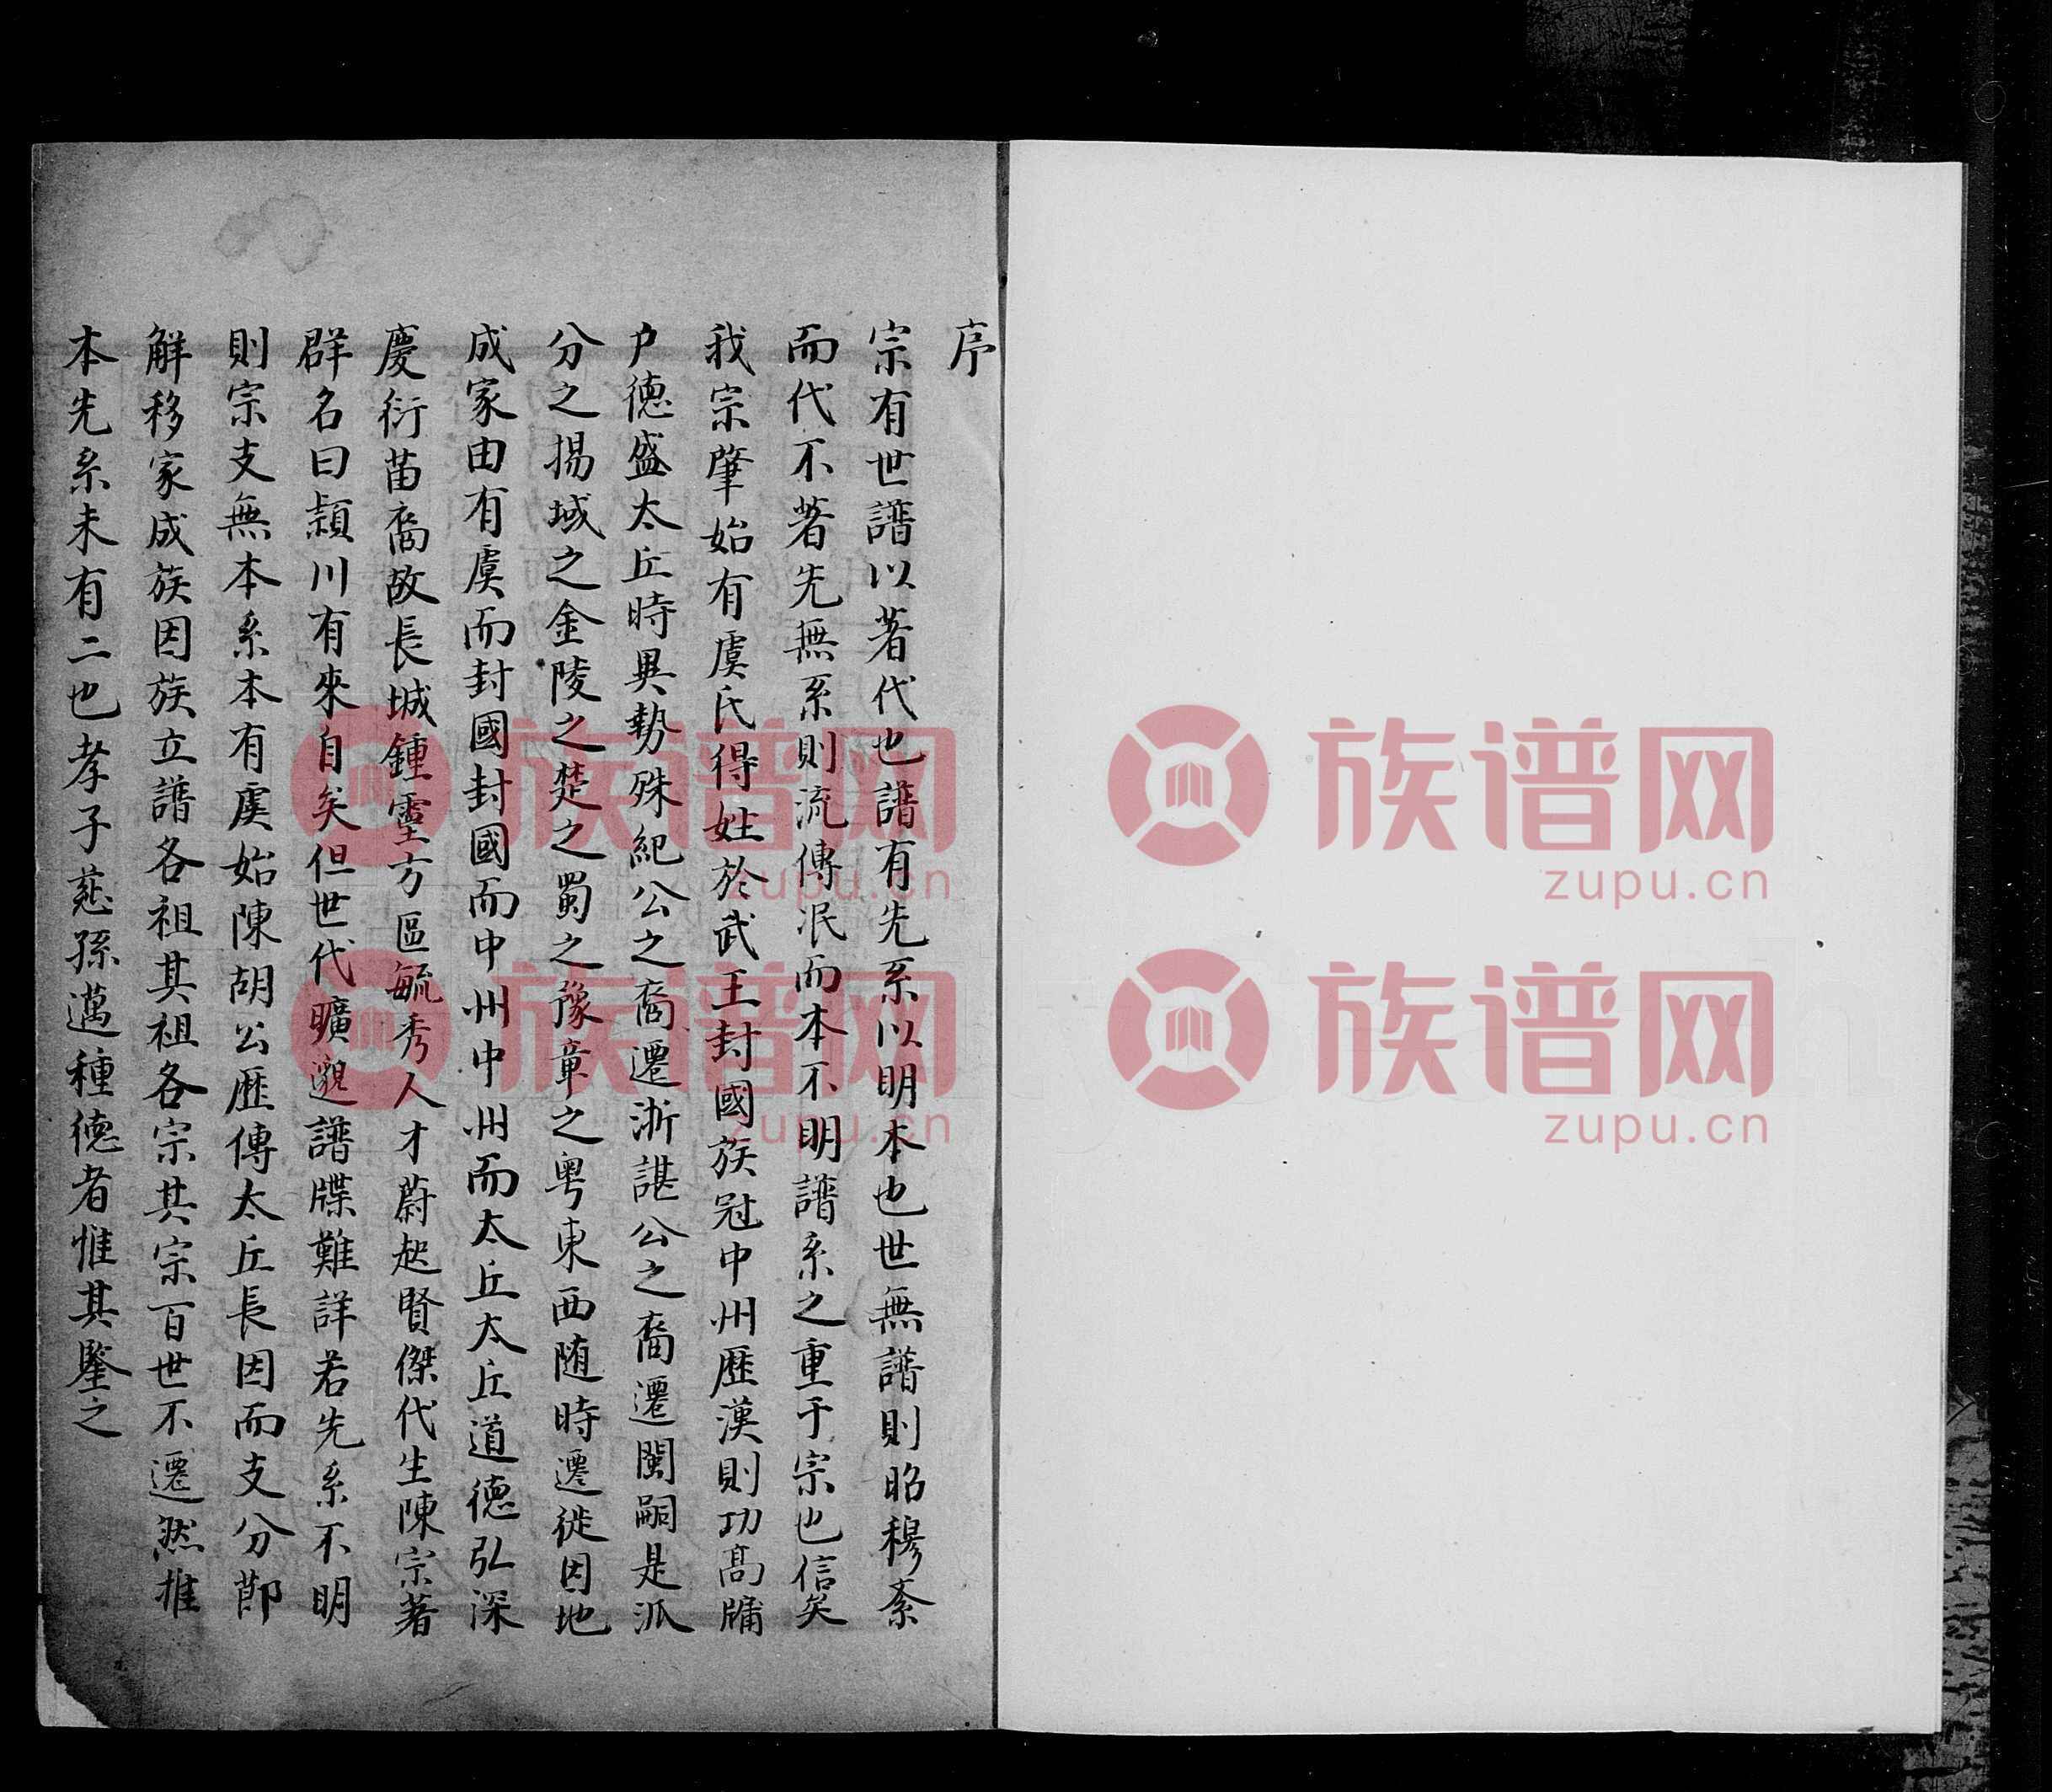 序
宗有世譜以著代也譜有先系以明本也世無譜則昭穆紊
而代不著先無系則流傳泯而本不明譜系之重于宗也信矣
我宗肇始有虞氏得姓於武王封國族冠中州歷漢則功高牖
户德盛太丘時異勢殊紀公之裔遷浙諶公之裔遷閩嗣是派
分之揚域之金陵之楚之蜀之豫章之粵東西随時遷徙因地
成家由有虞而封國封國而中州中州而太丘太丘道德弘深
慶衍苗裔故長城鍾靈方區毓秀人才蔚起賢傑代生陳宗著
群名曰頴川有來自矣但世代曠邈譜牒難詳若先系不明
則宗支無本系本有虞始陳胡公歷傳太丘長因而支分節
解移家成族因族立譜各祖其祖各宗其宗百世不遷然推
本先系未有二也孝子慈孫邁種德者惟其鑒之
族谱网
zupu.cn
族谱网
zupu.cn
族谱网
zupu.cn
族谱网
zupu.cn